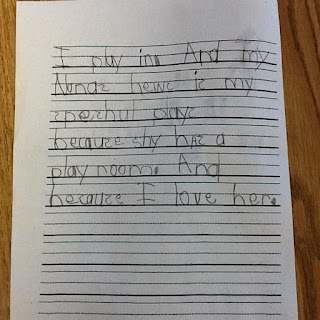 I play in. And my
Nonas hews is my
speshul plays
because shy has a
play room. And
because I love her.